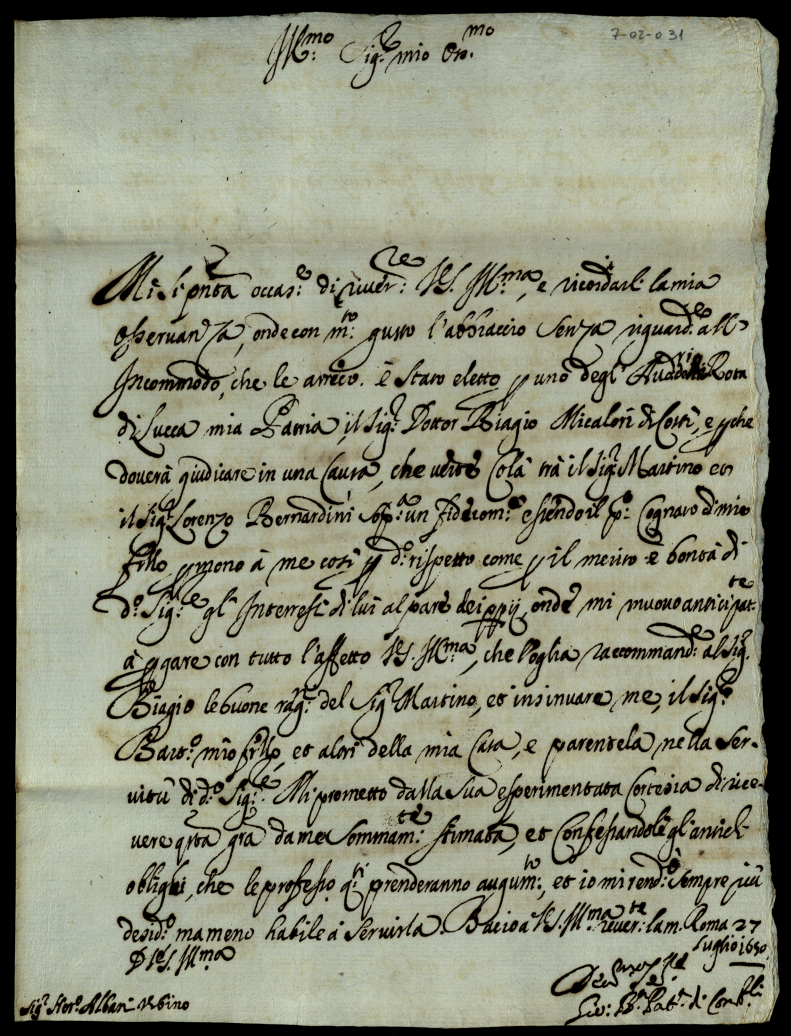 7-02-031
Ill:mo Sig:r mio Oss:mo
Mi si pnta occas:e di river:re V.S. Ill:ma, e ricordarl: la mia
osservanza, onde con m:to gusto l'abbraccio senza riguard:o all'
Incommodo, che le arreco. È stato eletto p uno degl' Auditori Rota
di Lucca mia Patria, il Sig:r Dottor Biagio Micalori di Costì, e pche
doverà giudicare in una Causa, che verte Colà trà il Sig:r Martino et
il Sig:r Lorenzo Bernardini sop:a un fidecom:o, essendo il p:o Cognato di mio
frllo, pmono à me così p d:o rispetto come p il merito e bontà di
d:o Sig:re gl' Interessi di lui al pare dei ppij, onde mi muovo anticipat:te
à pgare con tutto l'affetto V.S. Ill:ma, che voglia raccommand:e al Sig:r
Biagio le buone rag:ni del Sig:r Martino, et insinuare me, il Sig:r
Bart:o mio frllo, et altri della mia Casa, e parentela nella ser-
vitù di d:o Sig:re. Mi prometto dalla sua esperimentata Cortesia di rice-
vere qsta gra da me sommam:te stimata, et Confessandole gl'antich:
oblighi, che le professo, q:ti prenderanno augum:to, et io mi rend:o sempre più
desid:o ma meno habile à servirla. Bacio à V.S. Ill:ma river:te la m. Roma 27
Luglio 1650
D V.S. Ill:ma
Gio: B:a
Sig:r Hor:o Albani Urbino